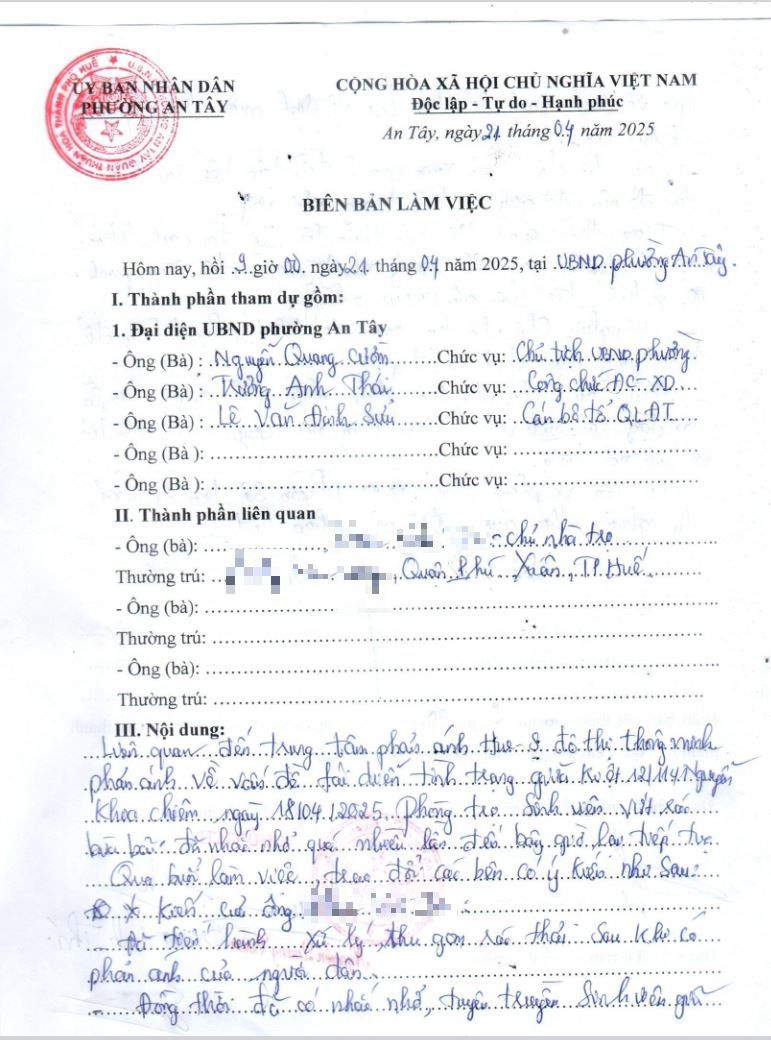 ỦY BAN NHÂN DÂN
PHƯỜNG AN TÂY
CỘNG HÒA XÃ HỘI CHỦ NGHĨA VIỆT NAM
Độc lập - Tự do - Hạnh phúc
An Tây, ngày 21 tháng 04 năm 2025
BIÊN BẢN LÀM VIỆC
Hôm nay, hồi 9 giờ 00 ngày 21 tháng 04 năm 2025, tại UBND phường An Tây.
I. Thành phần tham dự gồm:
1. Đại diện UBND phường An Tây
- Ông (Bà) : Nguyễn Quang Cườm Chức vụ: Chủ tịch UBND phường
- Ông (Bà) : Trương Anh Thái Chức vụ: Công chức ĐC-XD
- Ông (Bà) : Lê Văn Đình Sửu Chức vụ: Cán bộ tổ QLĐT
- Ông (Bà ): Chức vụ:
- Ông (Bà ): Chức vụ:
II. Thành phần liên quan
- Ông (bà): - chủ nhà trọ
Thường trú: , Quận Phú Xuân, TP Huế
- Ông (bà):
Thường trú:
- Ông (bà):
Thường trú:
III. Nội dung:
Liên quan đến trung tâm phản ánh Hue-S đô thị thông minh
phản ánh về vấn đề tái diễn tình trạng 12/114 Nguyễn
Khoa Chiêm, ngày 18/04/2025. Phòng trọ Sinh viên vứt rác
bừa bãi đã nhắc nhở quá nhiều lần đến bây giờ lại tiếp tục
Qua buổi làm việc, trao đổi các bên có ý kiến như sau:
Ý kiến của ông
Đã tiến hành xử lý, thu gom rác thải sau khi có
phản ánh của người dân.
- Đồng thời đã có nhắc nhở, tuyên truyền sinh viên giữ